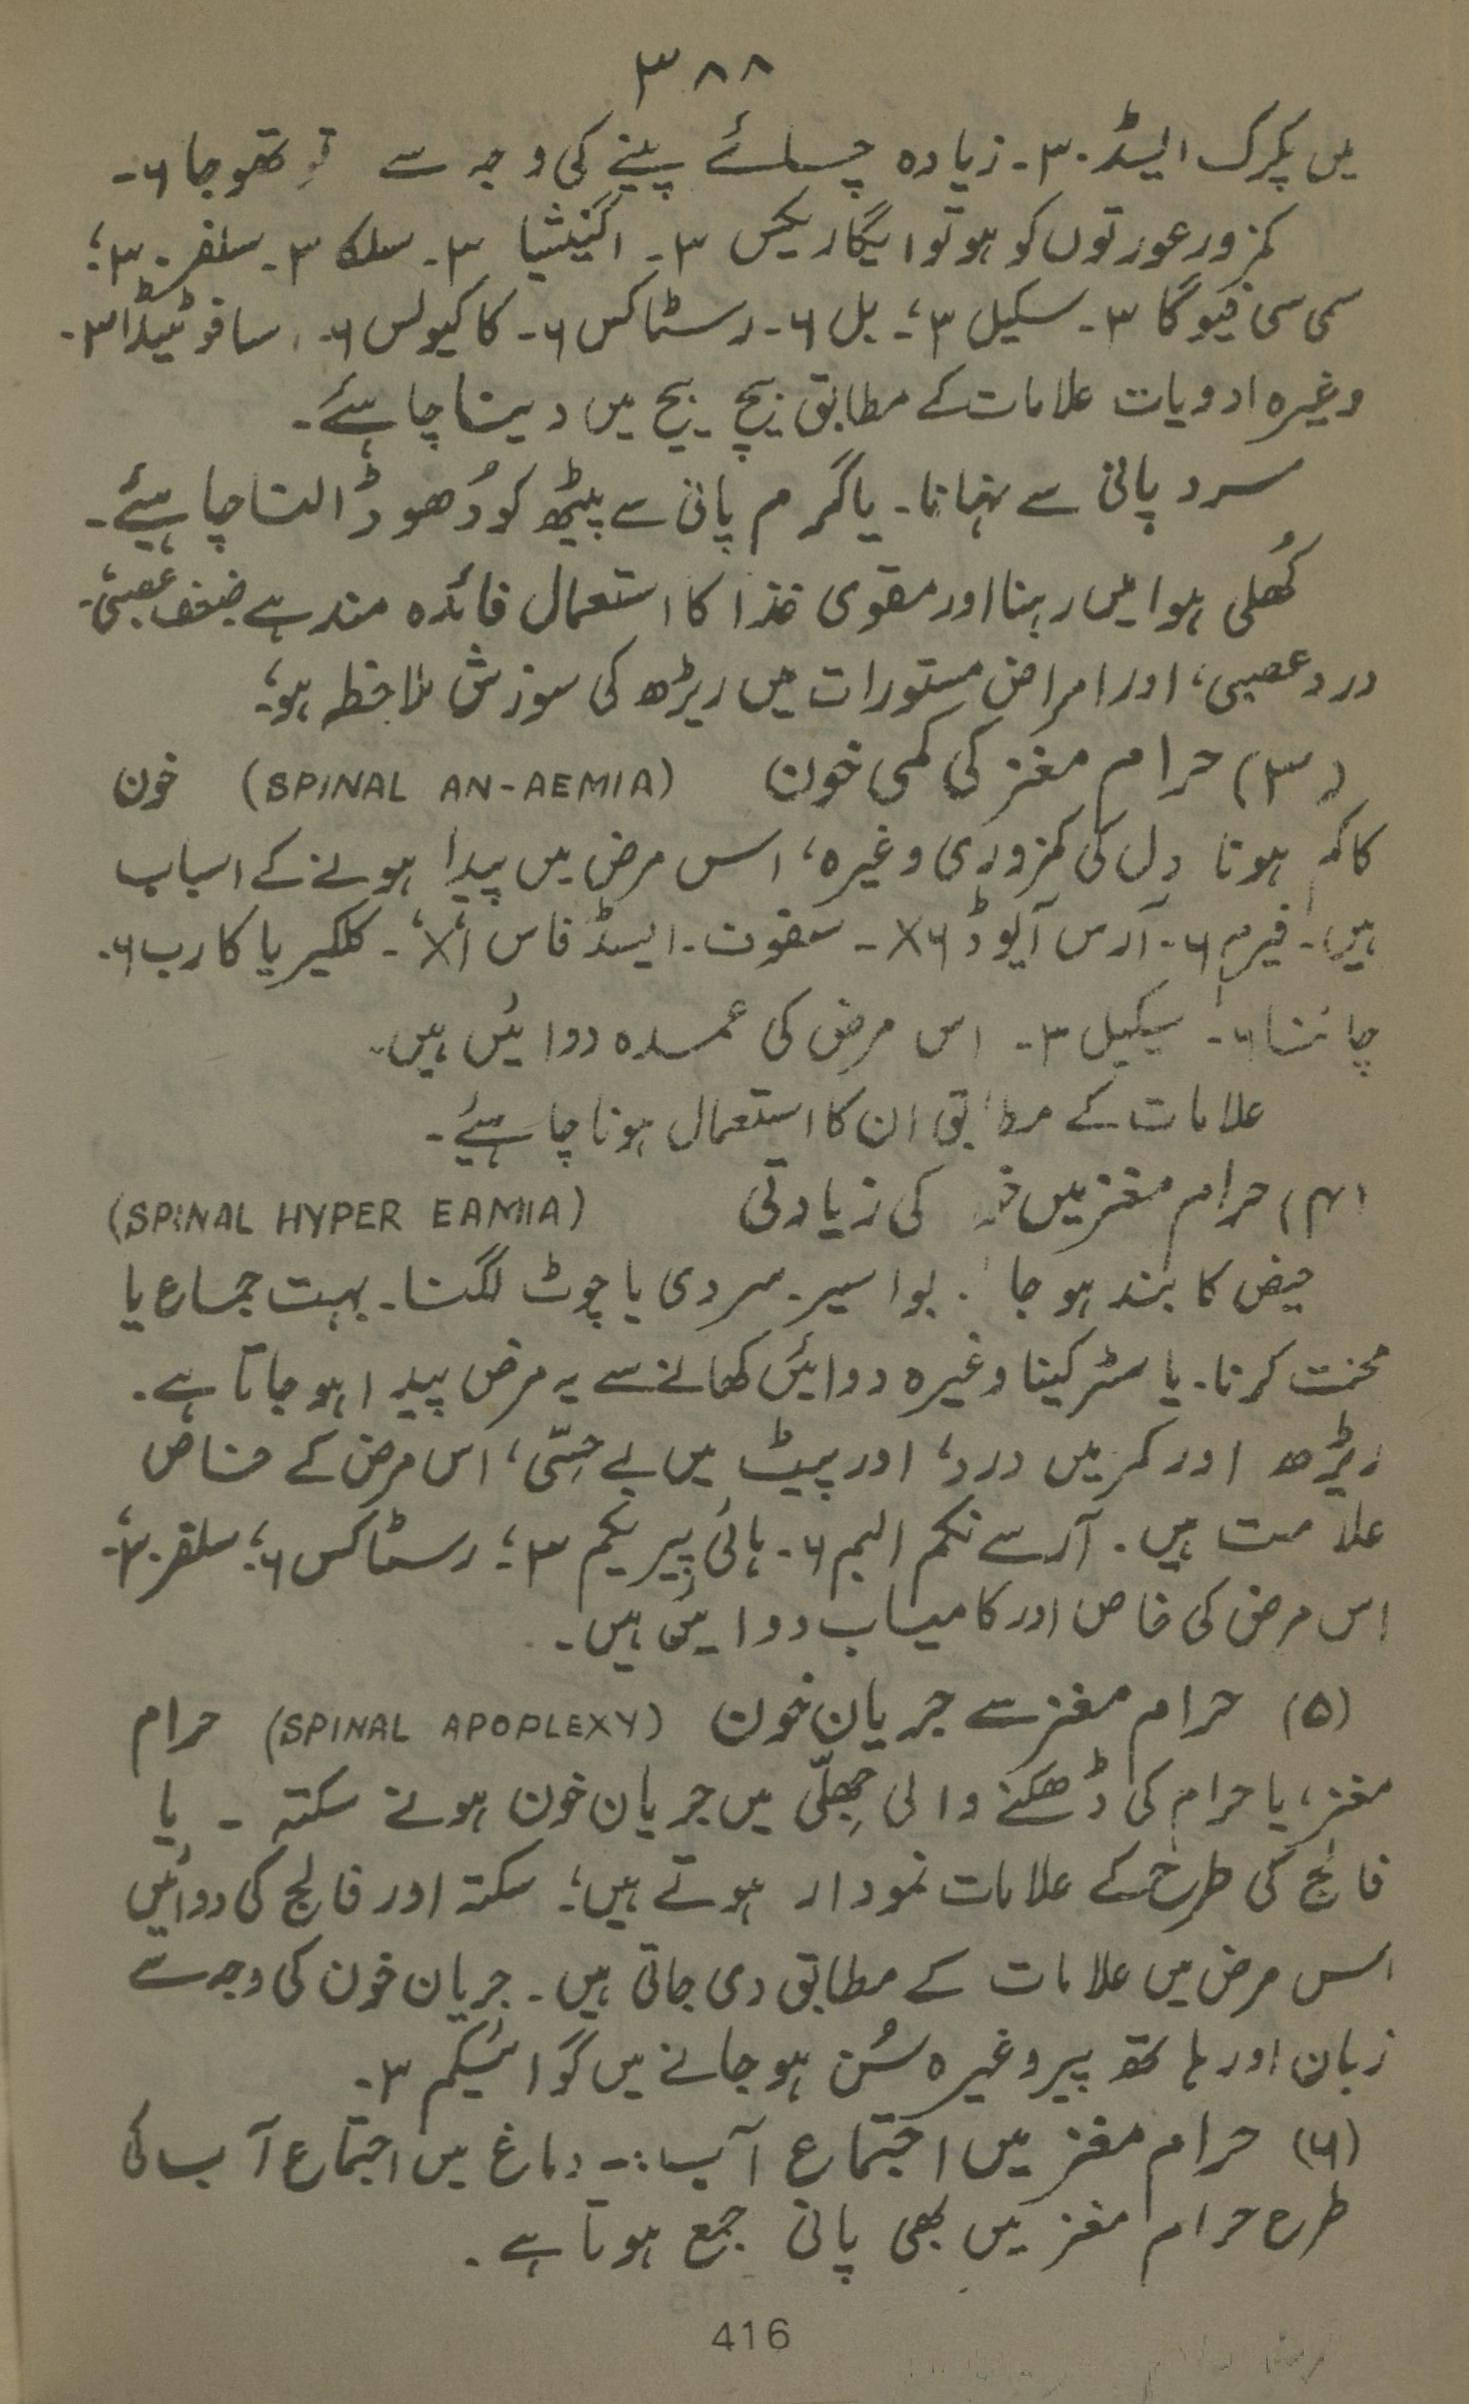 ۳۸۸
میں پکرک ایسڈ ۳۰۔ زیادہ چائے پینے کی وجہ سے تو تھوجا ۶۔
کمزور عورتوں کو ہو تو ایگاریکس ۳۔ اگنیشیا ۳۔ سلکا ۳۔ سلفر ۳۰؛
سمی سی فیوگا ۳۔ سکیل ۳؛۔ بل ۶۔ رسٹاکس ۶۔ کاکیولس ۶۔ سافوٹیڈا ۳۔
وغیرہ ادویات علامات کے مطابق بیچ بیچ میں دینا چاہئے۔
سرد پانی سے نہانا۔ یا گرم پانی سے پیٹھ کو دُھو ڈالنا چاہیئے۔
کُھلی ہوا میں رہنا اور مقوی غذا کا استعمال فائدہ مند ہے ضعف عصبی۔
درد عصبی، اور امراض مستورات میں ریڑھ کی سوزش ملاحظہ ہو؛
(۳) حرام مغز کی کمی خون (SPINAL AN-AEMIA) خون
کا کم ہونا دل کی کمزوری وغیرہ، اس مرض میں پیدا ہونے کے اسباب
ہیں۔ فیرم ۶۔ آرس آیوڈ ۶x۔ سفوف۔ ایسڈ فاس ۱x۔ کلکیریا کارب ۶۔
چائنا ۶۔ سیکیل ۳۔ اس مرض کی عمدہ دوائیں ہیں۔
علامات کے مطابق ان کا استعمال ہونا چاہیئے۔
(۴) حرام مغز میں خو کی زیادتی (SPINAL HYPER EAMIA)
حیض کا بند ہو جا . بواسیر۔ سردی یا چوٹ لگنا۔ بہت جماع یا
محنت کرنا۔ یا سٹرکینا وغیرہ دوائیں کھانے سے یہ مرض پیدا ہو جاتا ہے۔
ریڑھ اور کمر میں درد، اور پیٹ میں بے حِسّی، اس مرض کے خاص
علامت ہیں۔ آرسے نکم البم ۶۔ ہائی پیریکم ۳؛ رسٹاکس ۶؛ سلفر ۳۰؛
اس مرض کی خاص اور کامیاب دوائیں ہیں۔
(۵) حرام مغز سے جریان خون (SPINAL APOPLEXY) حرام
مغز، یا حرام کی ڈھکنے والی جِھلّی میں جریان خون ہونے سکتہ ۔ یا
فالج کی طرح کے علامات نمودار ہوتے ہیں؛ سکتہ اور فالج کی دوائیں
اس مرض میں علامات کے مطابق دی جاتی ہیں۔ جریان خون کی وجہ سے
زبان اور ہاتھ پیر وغیرہ سُن ہو جانے میں گوائیکم ۳۔
(۶) حرام مغز میں اجتماع آب :۔ دماغ میں اجتماع آب کی
طرح حرام مغز میں بھی پانی جمع ہوتا ہے۔
416